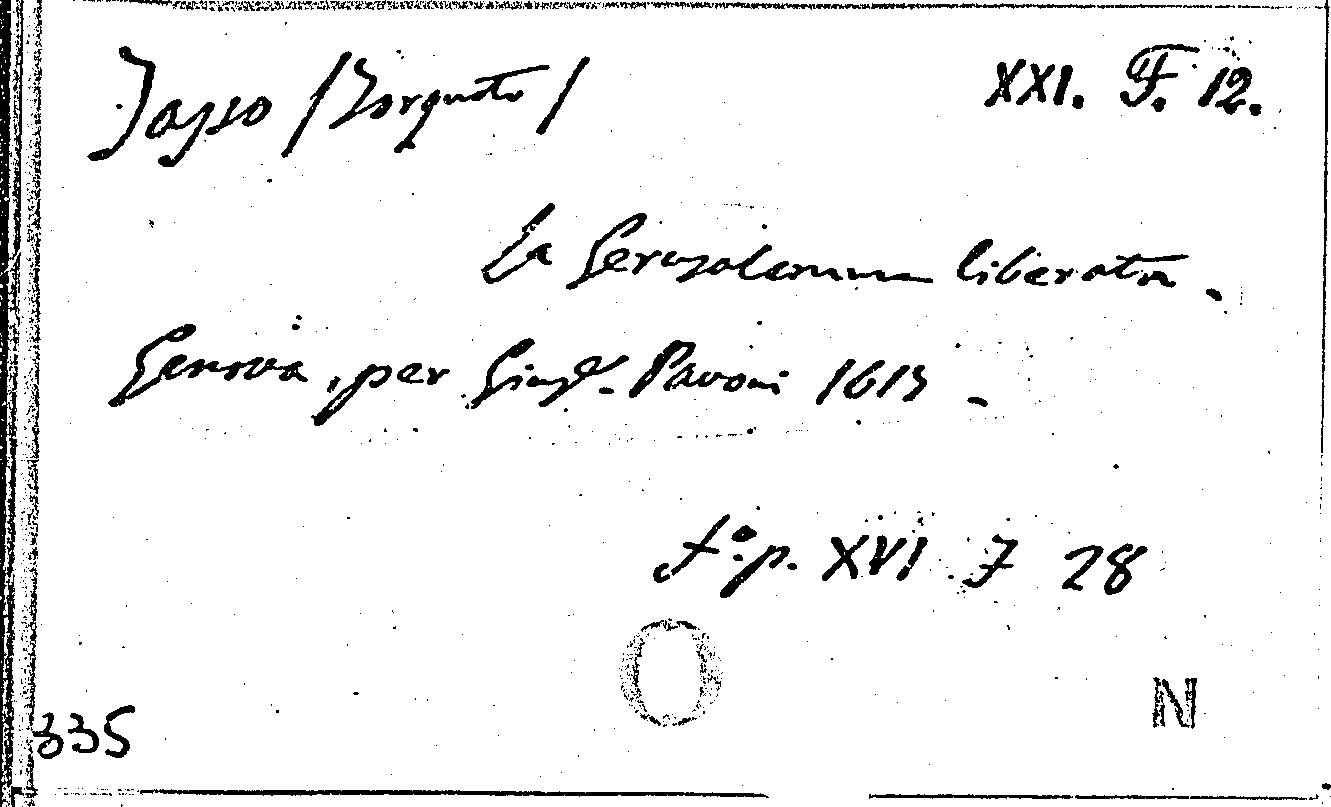 Tasso /Torquato/ XXI. F. 12.
La Gerusalemme liberata.
Genova, per Gius.e Pavoni 1615 -
f.º p. XVI F 28
O
N
335